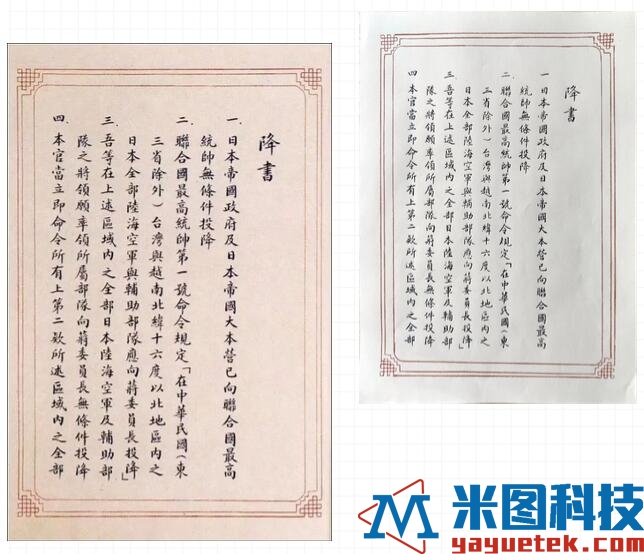 降書
一、日本帝國政府及日本帝國大本營已向聯合國最高
統帥無條件投降
二、聯合國最高統帥第一號命令規定「在中華民國（東
三省除外）台灣與越南北緯十六度以北地區內之
日本全部陸海空軍與輔助部隊應向蔣委員長投降」
三、吾等在上述區域內之全部日本陸海空軍及輔助部
隊之將領願率領所屬部隊向蔣委員長無條件投降
四、本官當立即命令所有上第二款所述區域內之全部
降書
一日本帝國政府及日本帝國大本營已向聯合國最高
統帥無條件投降
二、聯合國最高統帥第一號命令規定「在中華民國（東
三省除外）台灣與越南北緯十六度以北地區內之
日本全部陸海空軍與輔助部隊應向蔣委員長投降」
三、吾等在上述區域內之全部日本陸海空軍及輔助部
隊之將領願率領所屬部隊向蔣委員長無條件投降
四本官當立即命令所有上第二款所述區域內之全部
米图科技
yayuetek.com